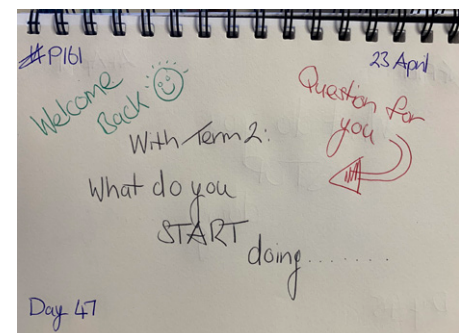 #P161
23 April
Welcome
Back
Question for
you
With Term 2:
What do you
START
doing........
Day 47